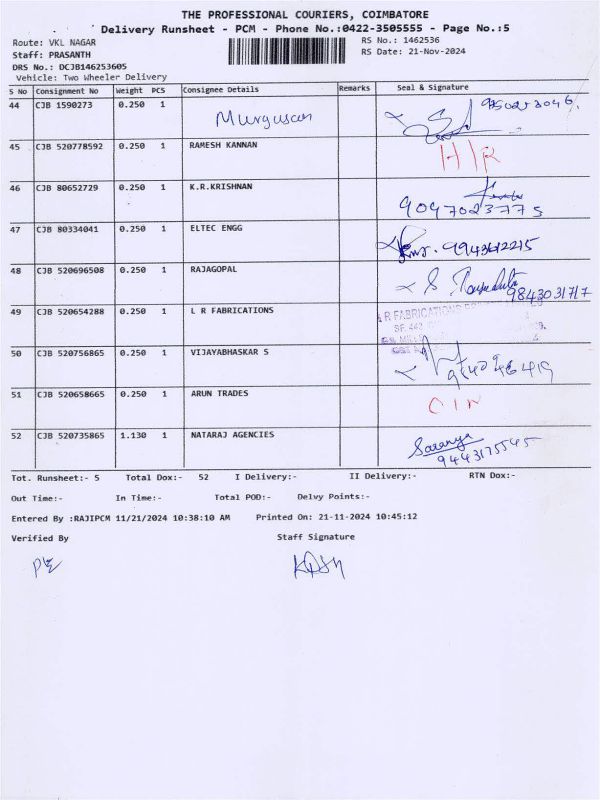 THE PROFESSIONAL COURIERS, COIMBATORE
Delivery Runsheet - PCM - Phone No.:0422-3505555 - Page No.:5
Route: VKL NAGAR RS No.: 1462536
Staff: PRASANTH RS Date: 21-Nov-2024
DRS No.: DCJB146253605
Vehicle: Two Wheeler Delivery
S No Consignment No Weight PCS Consignee Details Remarks Seal & Signature
44 CJB 1590273 0.250 1 Murgusan
45 CJB 520778592 0.250 1 RAMESH KANNAN H/R
46 CJB 80652729 0.250 1 K.R.KRISHNAN 9097023775
47 CJB 80334041 0.250 1 ELTEC ENGG 9943612215
48 CJB 520696508 0.250 1 RAJAGOPAL 9843031717
49 CJB 520654288 0.250 1 L R FABRICATIONS R FABRICATIONS
50 CJB 520756865 0.250 1 VIJAYABHASKAR S
51 CJB 520658665 0.250 1 ARUN TRADES
52 CJB 520735865 1.130 1 NATARAJ AGENCIES Saranya
9443175545
Tot. Runsheet:- 5 Total Dox:- 52 I Delivery:- II Delivery:- RTN Dox:-
Out Time:- In Time:- Total POD:- Delvy Points:-
Entered By :RAJIPCM 11/21/2024 10:38:10 AM Printed On: 21-11-2024 10:45:12
Verified By Staff Signature